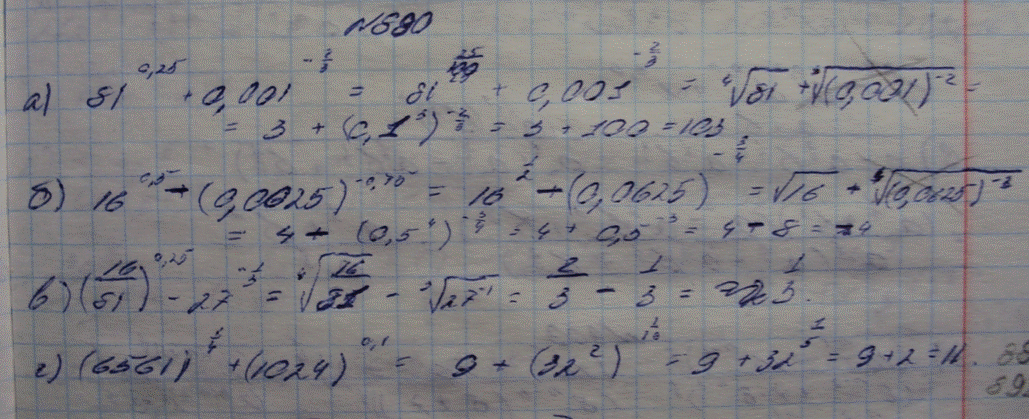 №690
а) 81^{0,25} + 0,001^{-2/3} = 81^{25/100} + 0,001^{-2/3} = ⁴√81 + ³√(0,001)^{-2} =
= 3 + (0,1³)^{-2/3} = 3 + 100 = 103
б) 16^{0,5} - (0,0625)^{-0,75} = 16^{1/2} - (0,0625)^{-3/4} = √16 + (0,0625)^{-3}
= 4 - (0,5⁴)^{-3/4} = 4 - 0,5^{-3} = 4 - 8 = -4
в) (16/81)^{0,25} - 27^{-1/3} = ⁴√16/81 - ³√27^{-1} = 2/3 - 1/3 = 1/3.
г) (6561)^{1/4} + (1024)^{0,1} = 9 + (32²)^{1/10} = 9 + 32^{1/5} = 9 + 2 = 11.